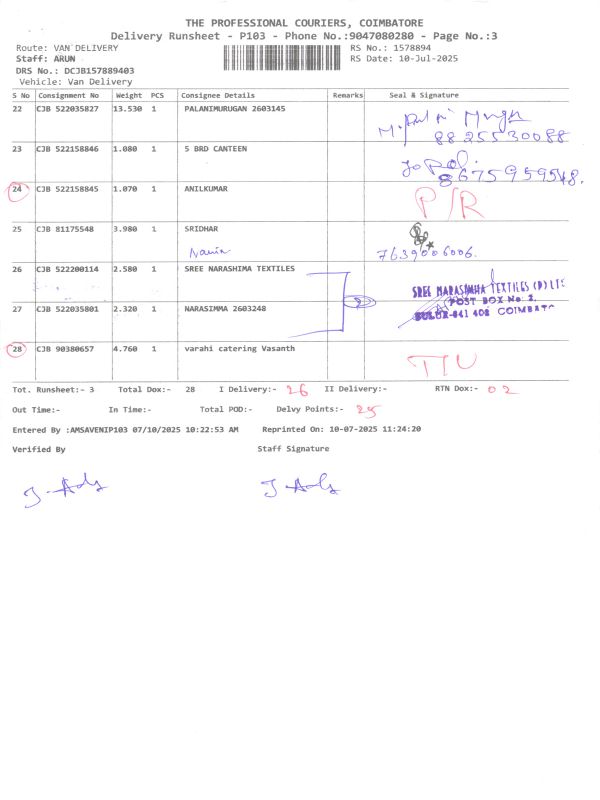 THE PROFESSIONAL COURIERS, COIMBATORE
Delivery Runsheet - P103 - Phone No.:9047080280 - Page No.:3
Route: VAN DELIVERY RS No.: 1578894
Staff: ARUN RS Date: 10-Jul-2025
DRS No.: DCJB157889403
Vehicle: Van Delivery
S No Consignment No Weight PCS Consignee Details Remarks Seal & Signature
22 CJB 522035827 13.530 1 PALANIMURUGAN 2603145
8825530088
23 CJB 522158846 1.080 1 5 BRD CANTEEN
8675959548.
24 CJB 522158845 1.070 1 ANILKUMAR P/R
25 CJB 81175548 3.980 1 SRIDHAR
7639006006.
26 CJB 522200114 2.580 1 SREE NARASHIMA TEXTILES
SREE NARASIMHA TEXTILES (P) LTD
POST BOX No: 2,
SULUR-641 402 COIMBATO
27 CJB 522035801 2.320 1 NARASIMMA 2603248
28 CJB 90380657 4.760 1 varahi catering Vasanth
Tot. Runsheet:- 3 Total Dox:- 28 I Delivery:- 26 II Delivery:- RTN Dox:- 02
Out Time:- In Time:- Total POD:- Delvy Points:- 25
Entered By :AMSAVENIP103 07/10/2025 10:22:53 AM Reprinted On: 10-07-2025 11:24:20
Verified By Staff Signature